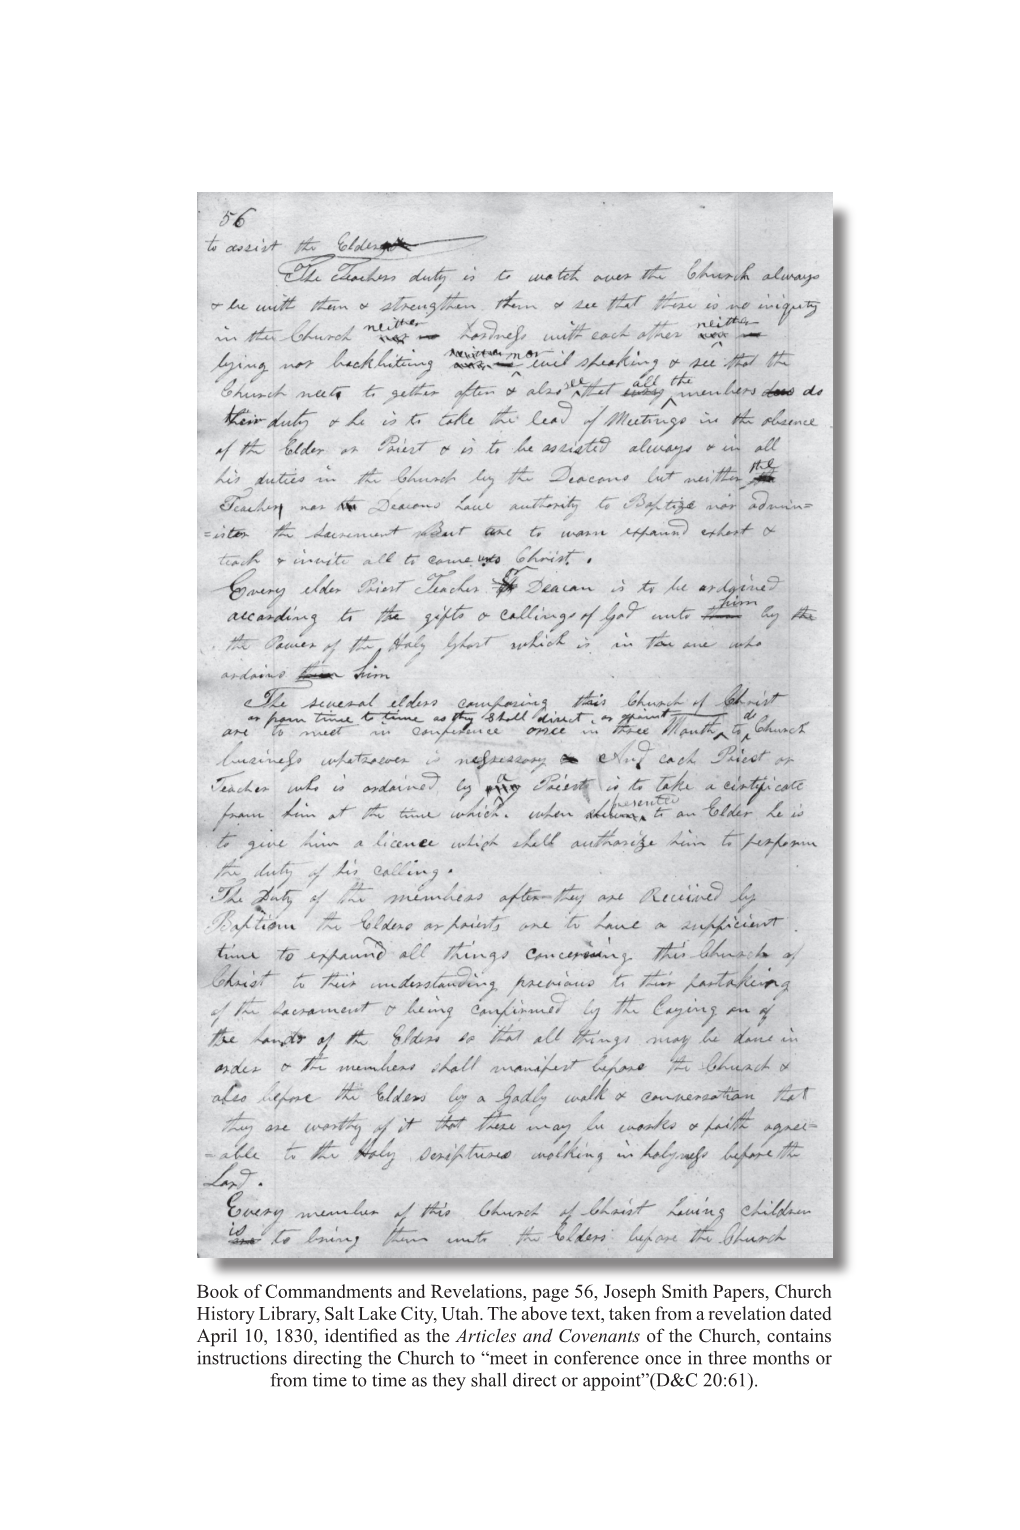 56
to assist the Elders
The Teachers duty is to watch over the Church always
& be with them & strengthen them & see that there is no iniquity
neither neither
in the Church nor hardness with each other nor
neither nor
lying nor backbiting evil speaking & see that the
see all the
Church meets to gether often & also that every members do
their duty & he is to take the lead of Meetings in the absence
of the Elder or Priest & is to be assisted always & in all
his duties in the Church by the Deacons but neither the
Teachers nor Deacons have authority to Baptize nor admin=
=ister the Sacrement But are to warn expound exhort &
teach & invite all to come unto Christ.
or
Every elder Priest Teacher Deacon is to be ordained
him
according to the gifts & callings of God unto them by the
the Power of the Holy Ghost which is in the one who
ordains them him
The several elders composing this Church of Christ
or from time to time as they shall direct or appoint
do
are to meet in conference once in three Month to Church
business whatsoever is necessary And each Priest or
a
Teacher who is ordained by any Priest is to take a certificate
presented
from him at the time which when to an Elder he is
to give him a licence which shall authorize him to perform
the duty of his calling.
The Duty of the members after they are Received by
Baptism the Elders or priests are to have a sufficient
time to expound all things concerning this Church of
Christ to their understanding previous to their partaking
of the Sacrament & being confirmed by the Laying on of
the hands of the Elders so that all things may be done in
order & the members shall manifest before the Church &
also before the Elders by a Godly walk & conversation that
they are worthy of it that there may be works & faith agree=
=able to the Holy scriptures walking in holyness before the
Lord.
Every member of this Church of Christ having children
is
are to bring them unto the Elders before the Church
Book of Commandments and Revelations, page 56, Joseph Smith Papers, Church
History Library, Salt Lake City, Utah. The above text, taken from a revelation dated
April 10, 1830, identified as the Articles and Covenants of the Church, contains
instructions directing the Church to “meet in conference once in three months or
from time to time as they shall direct or appoint”(D&C 20:61).